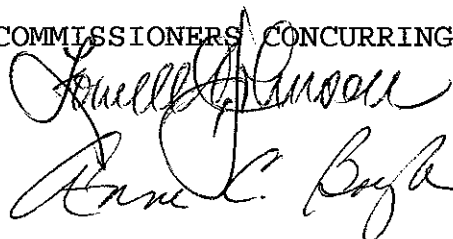 COMMISSIONERS CONCURRING
Lowell C. Johnson
Anne C. Boyle